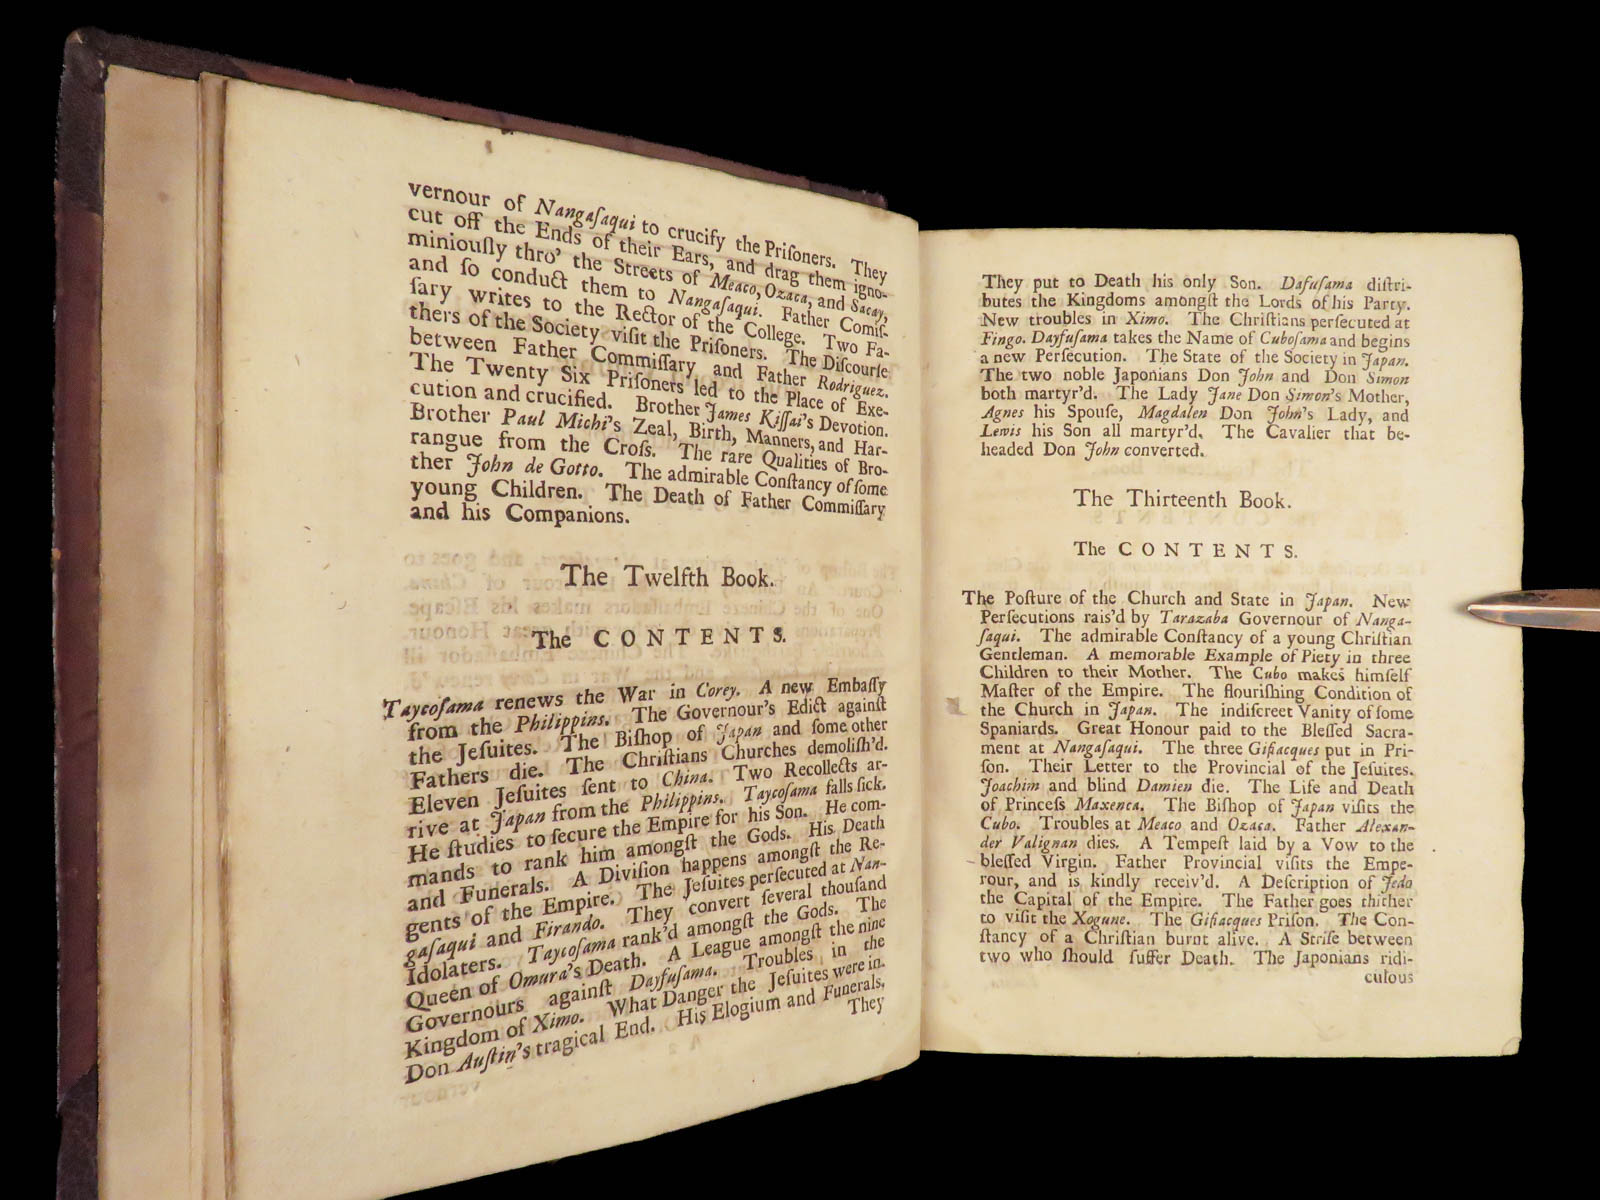 vernour of Nangaſaqui to crucify the Priſoners. They
cut off the Ends of their Ears, and drag them igno-
miniouſly thro' the Streets of Meaco, Ozaca, and Sacay,
and ſo conduct them to Nangaſaqui. Father Comiſ-
ſary writes to the Rector of the College. Two Fa-
thers of the Society viſit the Priſoners. The Diſcourſe
between Father Commiſſary and Father Rodriguez.
The Twenty Six Priſoners led to the Place of Exe-
cution and crucified. Brother James Kiſſai's Devotion.
Brother Paul Michi's Zeal, Birth, Manners, and Har-
rangue from the Croſs. The rare Qualities of Bro-
ther John de Gotto. The admirable Conſtancy of ſome
young Children. The Death of Father Commiſſary
and his Companions.
The Twelfth Book.
The CONTENTS.
Taycoſama renews the War in Corey. A new Embaſſy
from the Philippins. The Governour's Edict againſt
the Jeſuites. The Biſhop of Japan and ſome other
Fathers die. The Chriſtians Churches demoliſh'd.
Eleven Jeſuites ſent to China. Two Recollects ar-
rive at Japan from the Philippins. Taycoſama falls ſick.
He ſtudies to ſecure the Empire for his Son. He com-
mands to rank him amongſt the Gods. His Death
and Funerals. A Diviſion happens amongſt the Re-
gents of the Empire. The Jeſuites perſecuted at Nan-
gaſaqui and Firando. They convert ſeveral thouſand
Idolaters. Taycoſama rank'd amongſt the Gods. The
Queen of Omura's Death. A League amongſt the nine
Governours againſt Dayfuſama. Troubles in the
Kingdom of Ximo. What Danger the Jeſuites were in.
Don Auſtin's tragical End. His Elogium and Funerals.
They
They put to Death his only Son. Dafuſama diſtri-
butes the Kingdoms amongſt the Lords of his Party.
New troubles in Ximo. The Chriſtians perſecuted at
Fingo. Dayfuſama takes the Name of Cuboſama and begins
a new Perſecution. The State of the Society in Japan.
The two noble Japonians Don John and Don Simon
both martyr'd. The Lady Jane Don Simon's Mother,
Agnes his Spouſe, Magdalen Don John's Lady, and
Lewis his Son all martyr'd. The Cavalier that be-
headed Don John converted.
The Thirteenth Book.
The CONTENTS.
The Poſture of the Church and State in Japan. New
Perſecutions rais'd by Tarazaba Governour of Nanga-
ſaqui. The admirable Conſtancy of a young Chriſtian
Gentleman. A memorable Example of Piety in three
Children to their Mother. The Cubo makes himſelf
Maſter of the Empire. The flouriſhing Condition of
the Church in Japan. The indiſcreet Vanity of ſome
Spaniards. Great Honour paid to the Bleſſed Sacra-
ment at Nangaſaqui. The three Gifiacques put in Pri-
ſon. Their Letter to the Provincial of the Jeſuites.
Joachim and blind Damien die. The Life and Death
of Princeſs Maxenca. The Biſhop of Japan viſits the
Cubo. Troubles at Meaco and Ozaca. Father Alexan-
der Valignan dies. A Tempeſt laid by a Vow to the
bleſſed Virgin. Father Provincial viſits the Empe-
rour, and is kindly receiv'd. A Deſcription of Jedo
the Capital of the Empire. The Father goes thither
to viſit the Xogune. The Gifiacques Priſon. The Con-
ſtancy of a Chriſtian burnt alive. A Strife between
two who ſhould ſuffer Death. The Japonians ridi-
culous